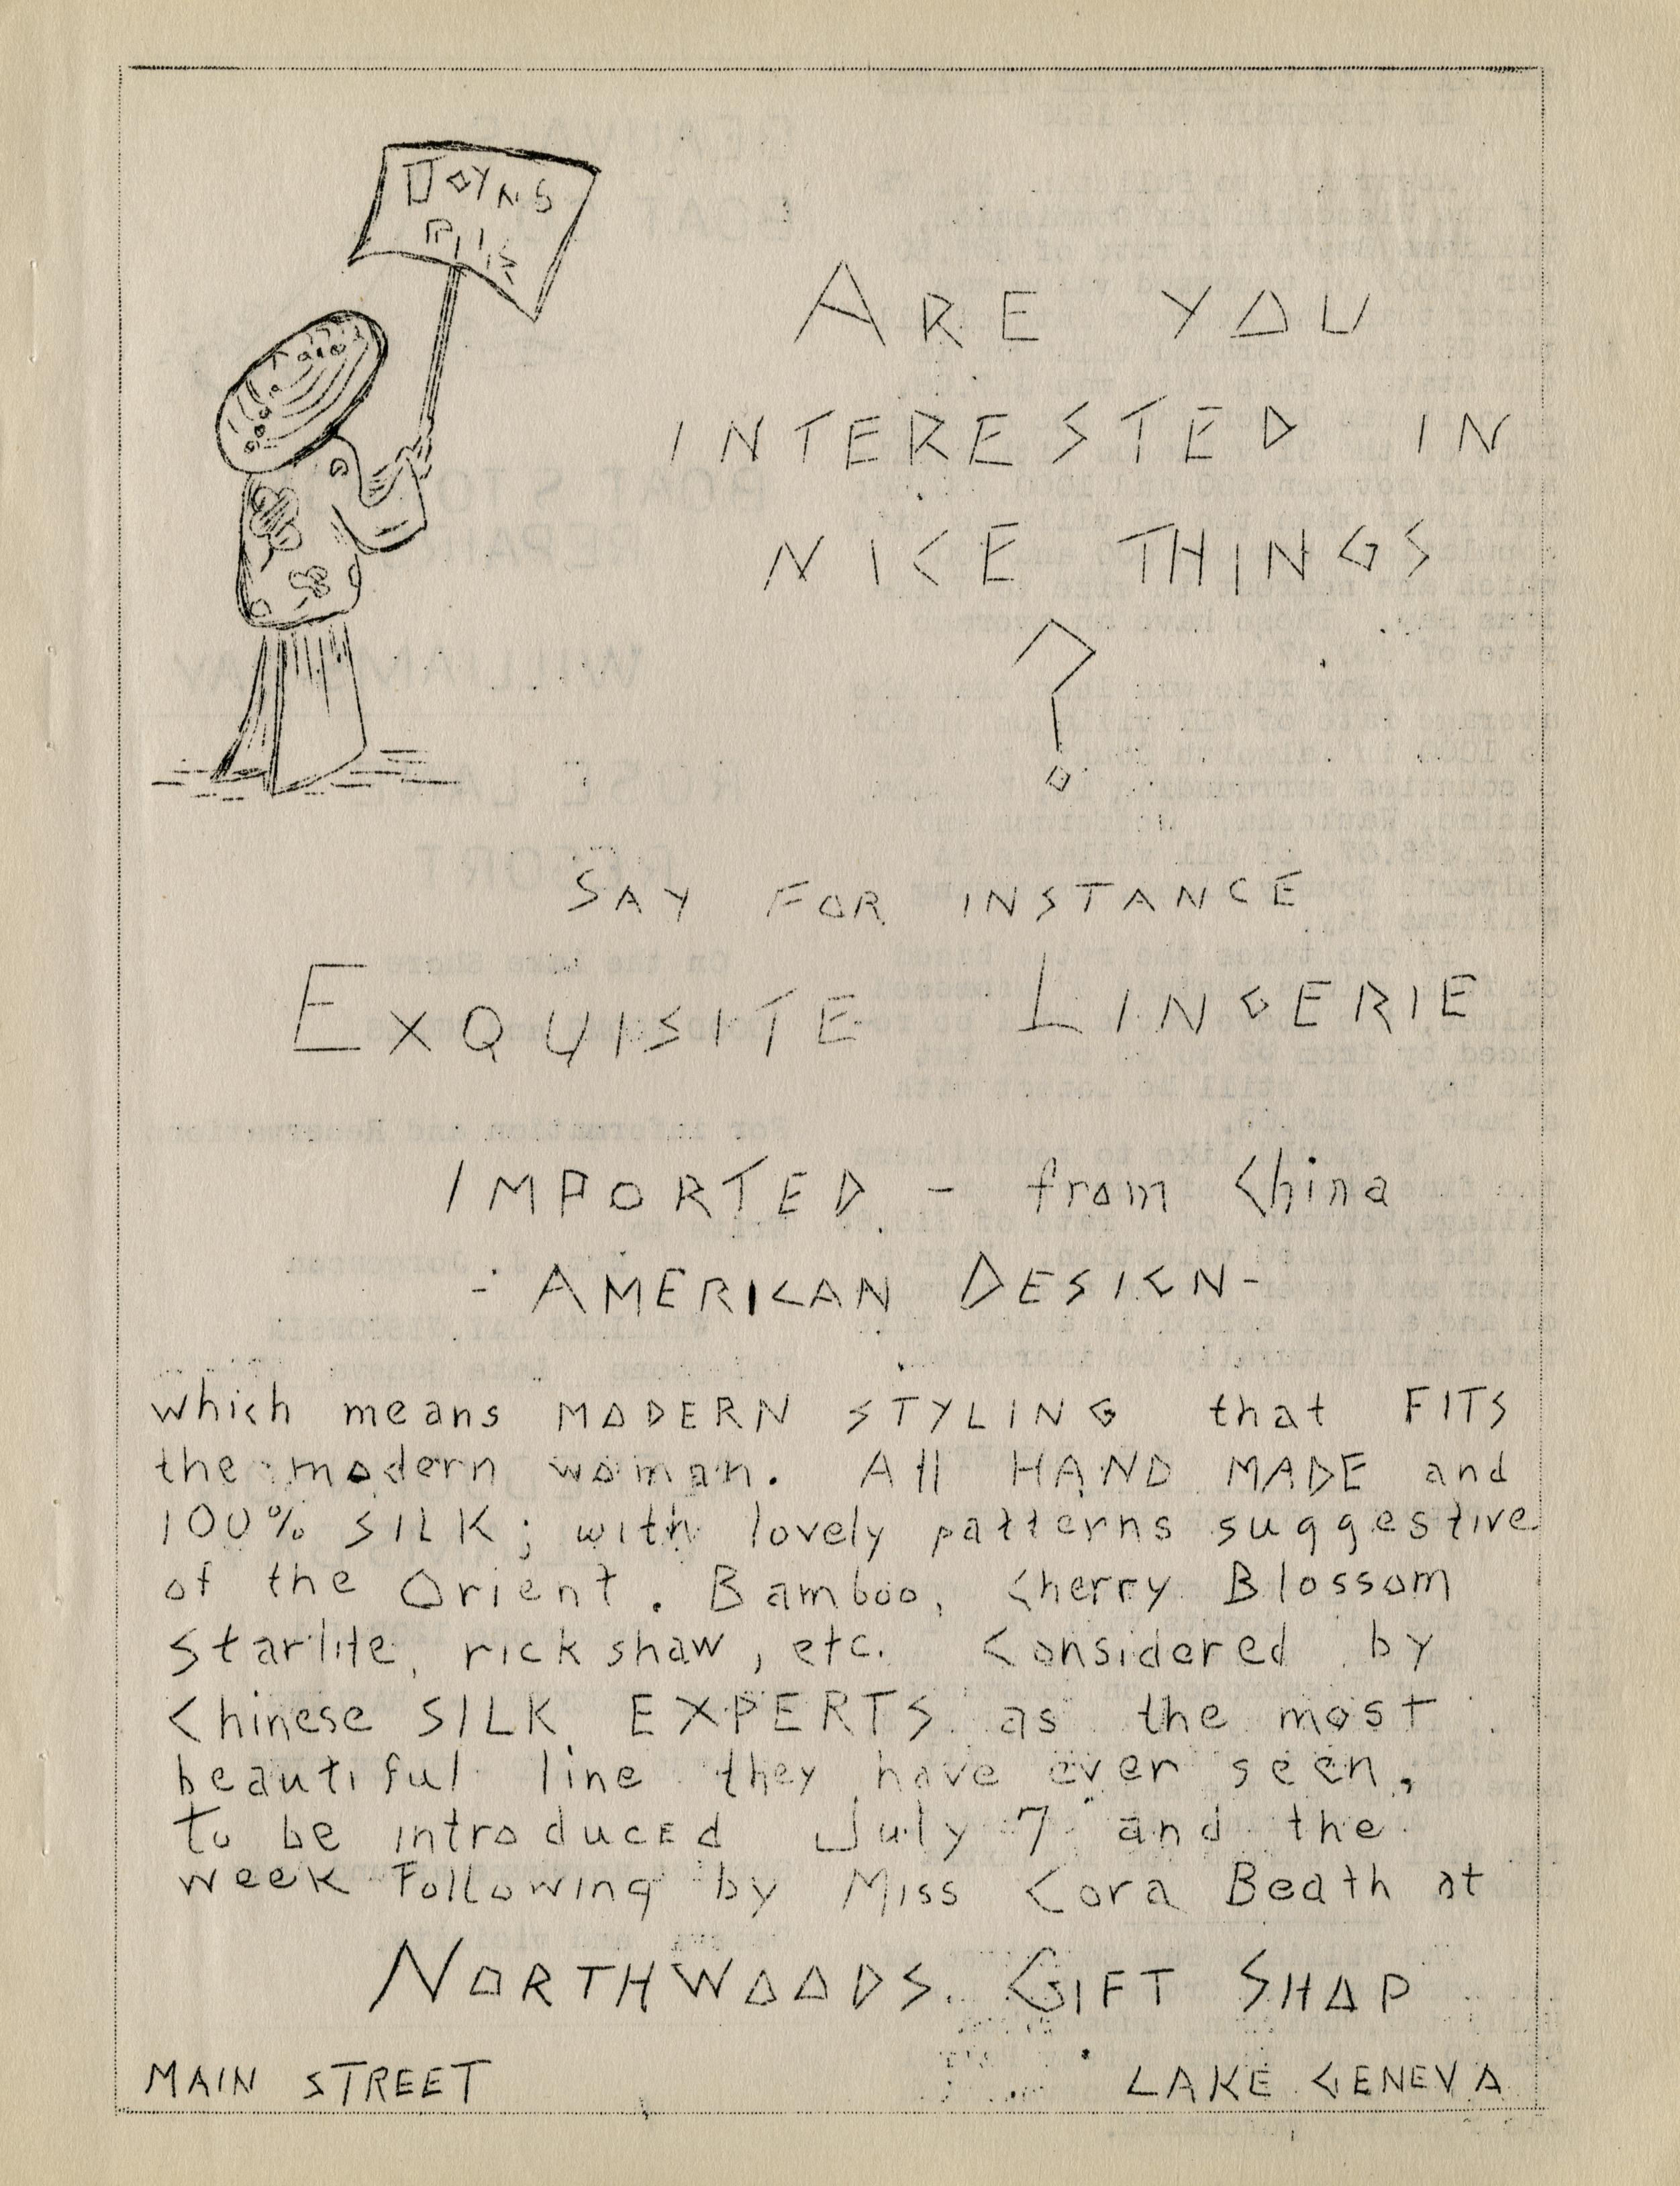 DOYNS
PILLS
ARE YOU
INTERESTED IN
NICE THINGS
?
SAY FOR INSTANCE
EXQUISITE LINGERIE
IMPORTED - from China
- AMERICAN DESIGN -
which means MODERN STYLING that FITS
the modern woman. All HAND MADE and
100% SILK; with lovely patterns suggestive
of the Orient. Bamboo, Cherry Blossom
Starlite, rick shaw, etc. Considered by
Chinese SILK EXPERTS as the most
beautiful line they have ever seen,
To be introduced July 7 and the
week Following by Miss Cora Beath at
NORTHWOODS GIFT SHOP
MAIN STREET LAKE GENEVA